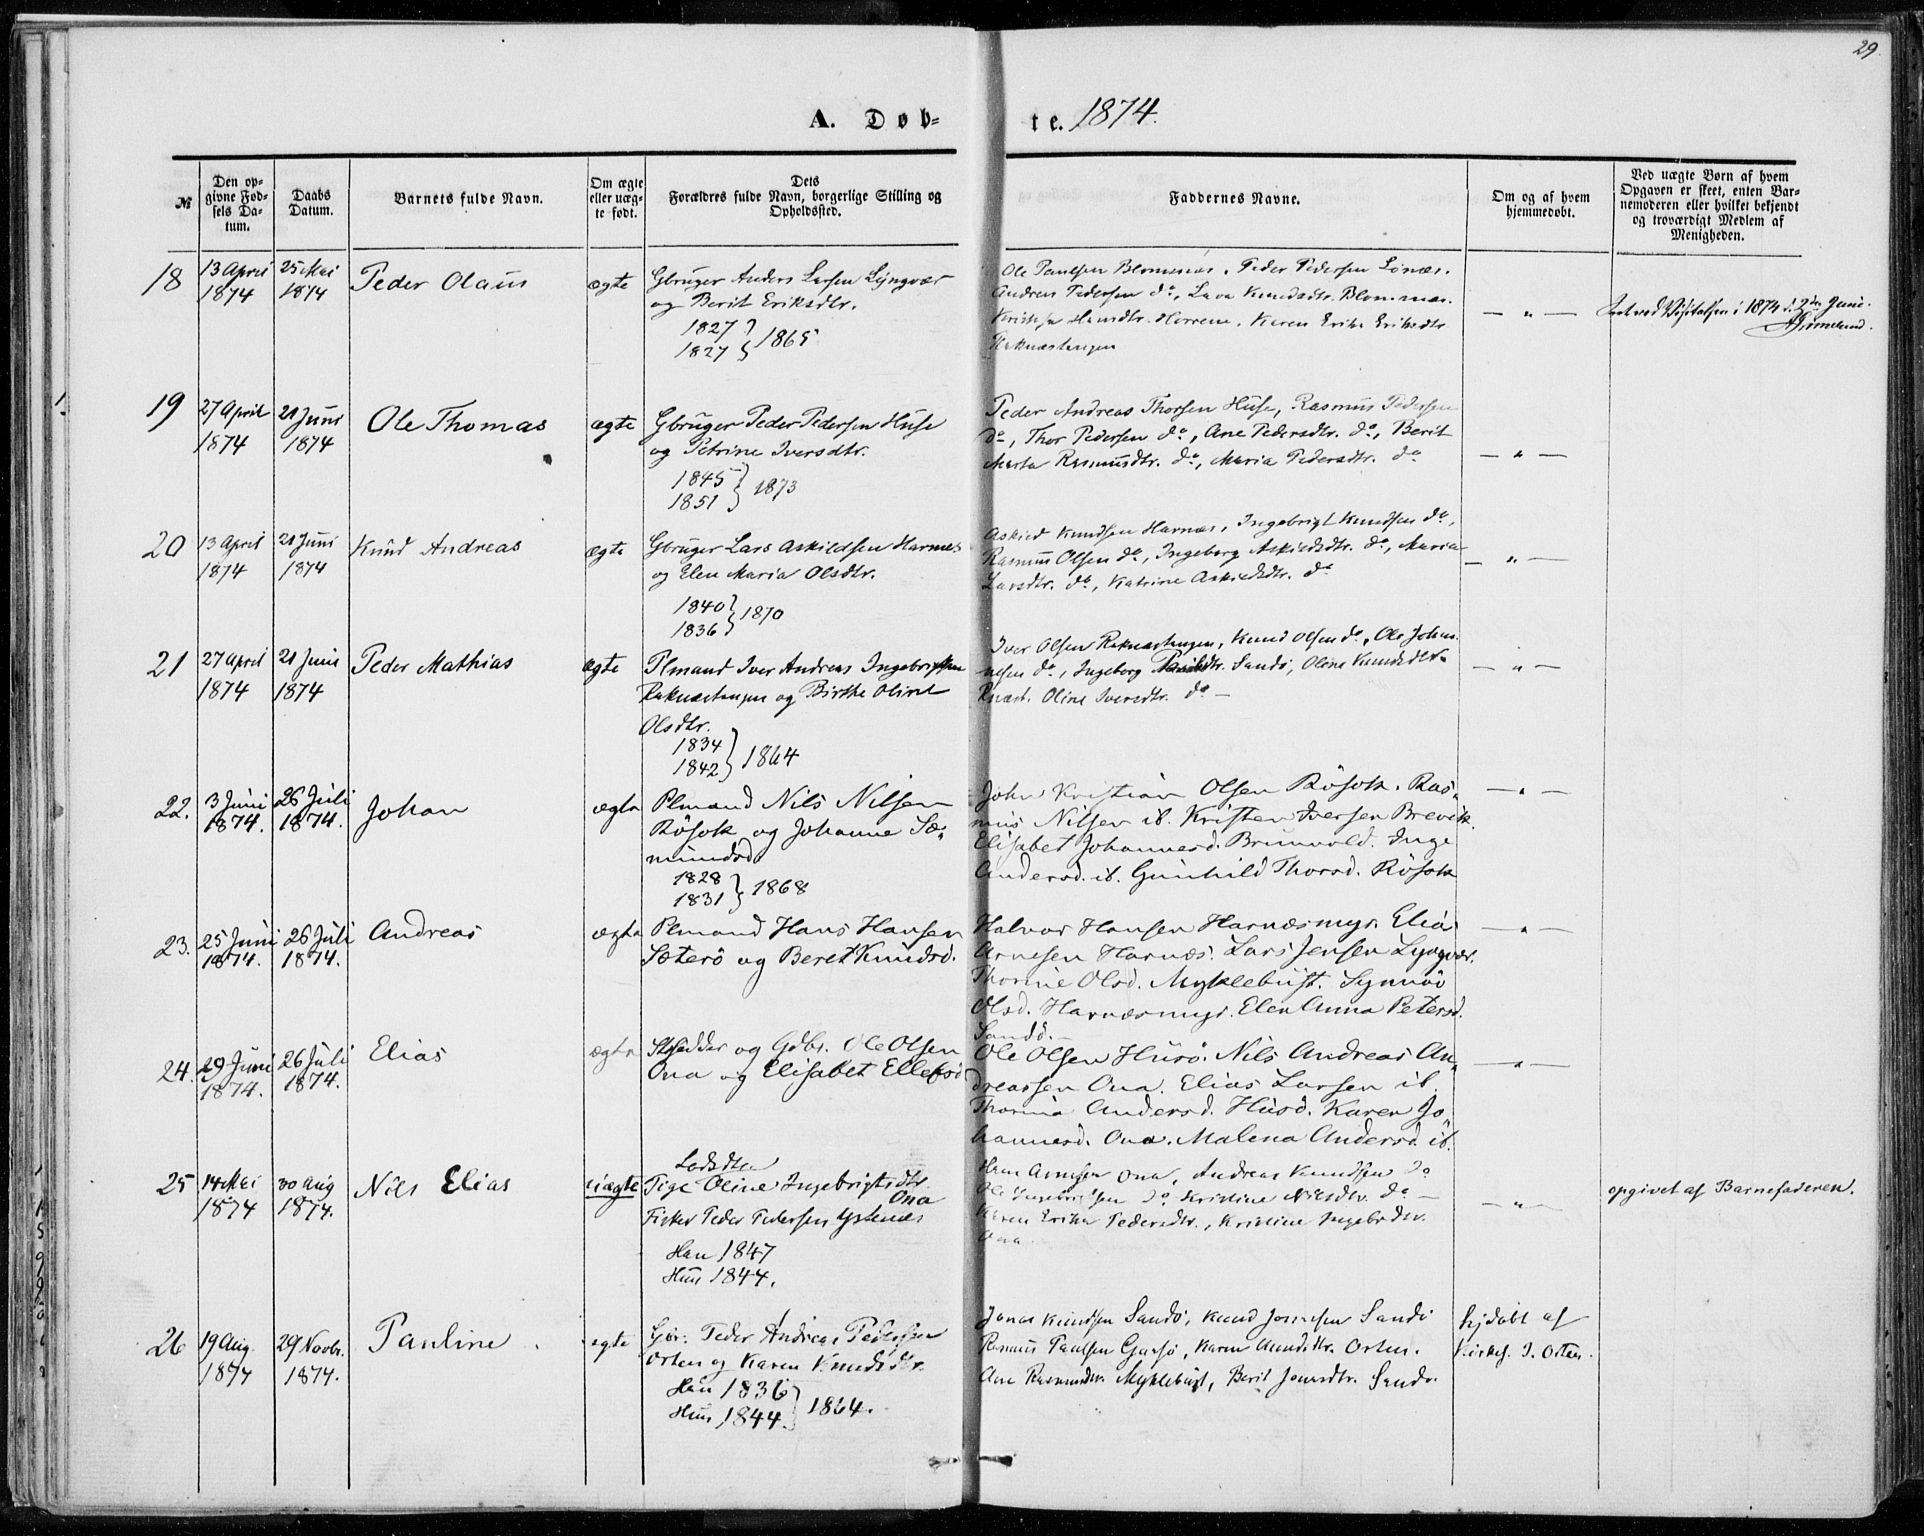 29.
A. Døb-
te. 1874.
№
Den op-
givne Fød-
sels Da-
tum.
Daabs
Datum.
Barnets fulde Navn.
Om ægte
eller uæg-
te født.
Dets
Forældres fulde Navn, borgerlige Stilling og
Opholdssted.
Faddernes Navne.
Om og af hvem
hjemmedøbt.
Ved uægte Børn af hvem
Opgaven er skeet, enten Bar-
nemoderen eller hvilket bekjendt
og troværdigt Medlem af
Menigheden.
18
13 April
1874
25 Mai
1874
Peder Olaus
ægte
Gbruger Anders Larsen Lyngvær
og Berit Eriksdtr.
1827
1827 } 1865
Ole Paulsen Blomsnæs. Peder Pedersen Lönæs.
Andreas Pedersen do, Lava Knudsdtr. Blommæs.
Hansdtr. Karen Erika Eriksdtr
Raknæstangen
— „ —
ved Visitatsen i 1874 d. 2den Juni.
19
27 April
1874
21 Juni
1874
Ole Thomas
ægte
Gbruger Peder Pedersen Huse
og Petrine Iversdtr.
1845
1851 } 1873
Peder Andreas Thorsen Huse, Rasmus Pedersen
do, Thor Pedersen do, Ane Pedersdtr. do, Berit
Marta Rasmusdtr. do, Maria Pedersdtr. do
— „ —
20
13 April
1874
21 Juni
1874
Knud Andreas
ægte
Gbruger Lars Askildsen Harnæs
og Elen Maria Olsdtr.
1840
1836 } 1870
Askild Knudsen Harnæs, Ingebrigt Knudsen do,
Rasmus Olsen do, Ingeborg Askildsdtr. do, Maria
Larsdtr. do, Katrine Askildsdtr. do
— „ —
21
27 April
1874
21 Juni
1874
Peder Mathias
ægte
Plmand Iver Andreas Ingebrigtsen
Raknæstangen og Birthe Oline
Olsdtr.
1834
1842 } 1864
Iver Olsen Raknæstangen, Knud Olsen do, Ole Johan
nesen do, Ingeborg Sandö, Oline Knudsdtr.
Raknæst. Oline Iversdtr. do —
— „ —
22.
3 Juni
1874.
26 Juli
1874.
Johan
ægte
Plmand Nils Nilsen
Rösok og Johanne Sæ-
mundsd.
1828
1831 } 1868
John Kristian Olsen Rösok. Ras-
mus Nilsen ib. Kristen Iversen Brevik.
Elisabet Johannesd. Brunvold. Inge
Andersd. ib. Gunhild Thorsd. Rösok
— „ —
23.
25 Juni
1874.
26 Juli
1874.
Andreas
ægte
Plmand Hans Hansen
Sæterö og Beret Knudsd.
Halvor Hansen Harnæsmyr. Elias
Arnesen Harnæs. Lars Jensen Lyngvær.
Thorine Olsd. Myklebust. Synnöv
Olsd. Harnæsmyr. Elen Anna Petersd.
Sandö. —
— „ —
24.
29 Juni
1874.
26 Juli
1874.
Elias
ægte
og Gdbr. Ole Olsen
Ona og Elisabet Ellefsd.
Ole Olsen Husö. Nils Andreas An-
dreassen Ona. Elias Larsen ib.
Thorina Andersd. Husö. Karen Jo-
hannesd. Ona. Malena Andersd. ib.
— „ —
25
14 Mai
1874
30 Aug
1874.
Nils Elias
uægte
Pige Oline Ingebrigtsdtr
Ona
Fisker Peder Pedersen Ystenæs
Han 1847
Hun 1844.
Hans Arnesen Ona, Andreas Knudsen do
Ole Ingebrigtsen do Kristine Nilsdtr. do —
Karen Erika Pedersdtr., Kristine Ingebrdtr.
Ona.
— „ —
opgivet af Barnefaderen.
26
19 Aug.
1874
29 Novbr.
1874.
Pauline
ægte
Gbr. Peder Andreas Pedersen
Orten og Karen Knudsdtr.
Han 1836
Hun 1844. } 1864.
Jonas Knudsen Sandö, Knud Jonassen Sandö
Rasmus Paulsen Gaasö, Karen Amundsdtr. Orten.
Ane Rasmusdtr. Myklebust, Berit Jonasdtr. Sandö.
hjdöbt af
Kirkes. I. Orten.